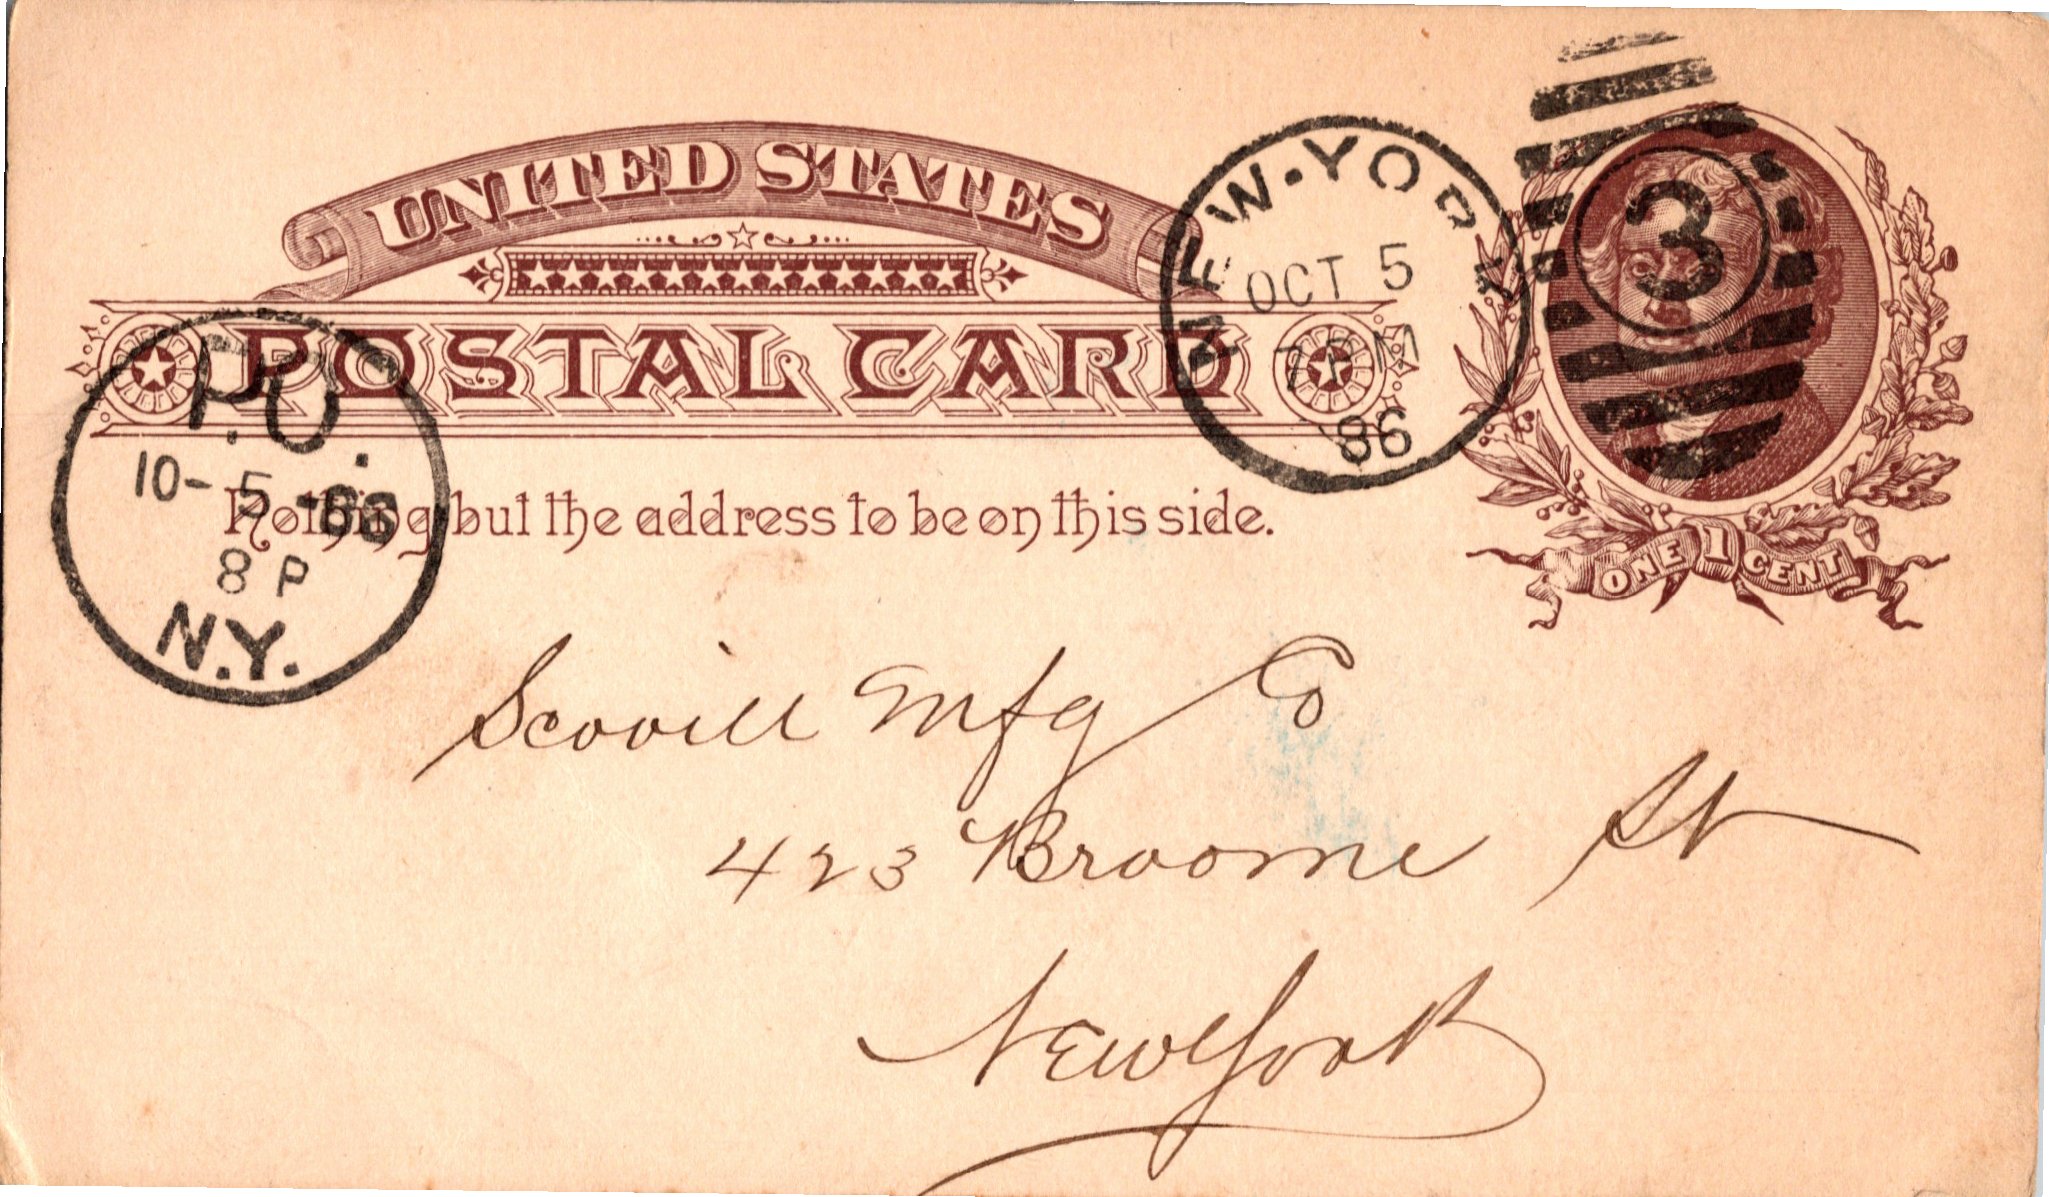 UNITED STATES
POSTAL CARD
Nothing but the address to be on this side.
NEW-YORK
OCT 5
7 PM
86
3
ONE 1 CENT
P.O.
10-5-86
8 P
N.Y.
Scovill Mfg Co
423 Broome St
New York